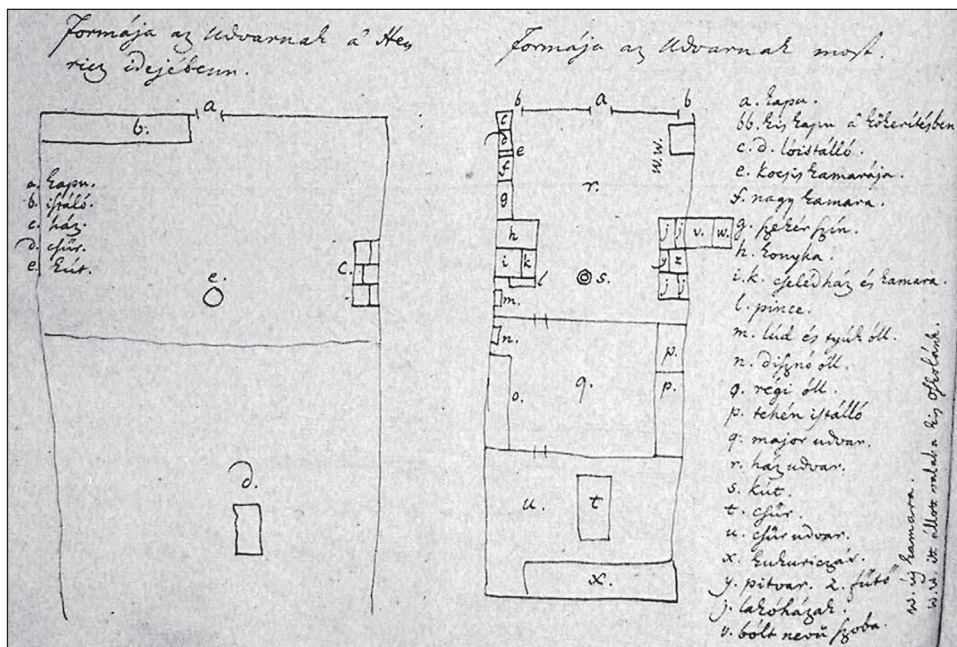 Formája az Udvarnak â Hen
ricz idejébenn.
a
b.
a. kapu.
b. istáló.
c. ház.
d. csűr.
e. kút.
c.
e.
d.
Formája az Udvarnak most.
b a b
c
d
e
f
g
h
i k
l
m.
n.
o.
r.
w.w.
j j v. w.
y z
j j
s.
p.
p.
q.
u. t
x.
a. kapu.
bb. kis kapu â kőkerítésben
c. d. lóistálló.
e. kocsis kamarája.
f. nagy kamara.
g. szekér szín.
h. konyha.
i. k. cselédház és kamara.
l. pince.
m. lúd és tyúk óll.
n. disznó óll.
o. régi óll.
p. tehén istálló
q. major udvar.
r. ház udvar.
s. kút.
t. csűr.
u. csűr udvar.
x. kukuriczás.
y. pitvar. z. fűtő
j. lakoházak.
v. bólt nevű szoba.
w. új kamara.
w.w. itt állott valaha kis oskolánk.